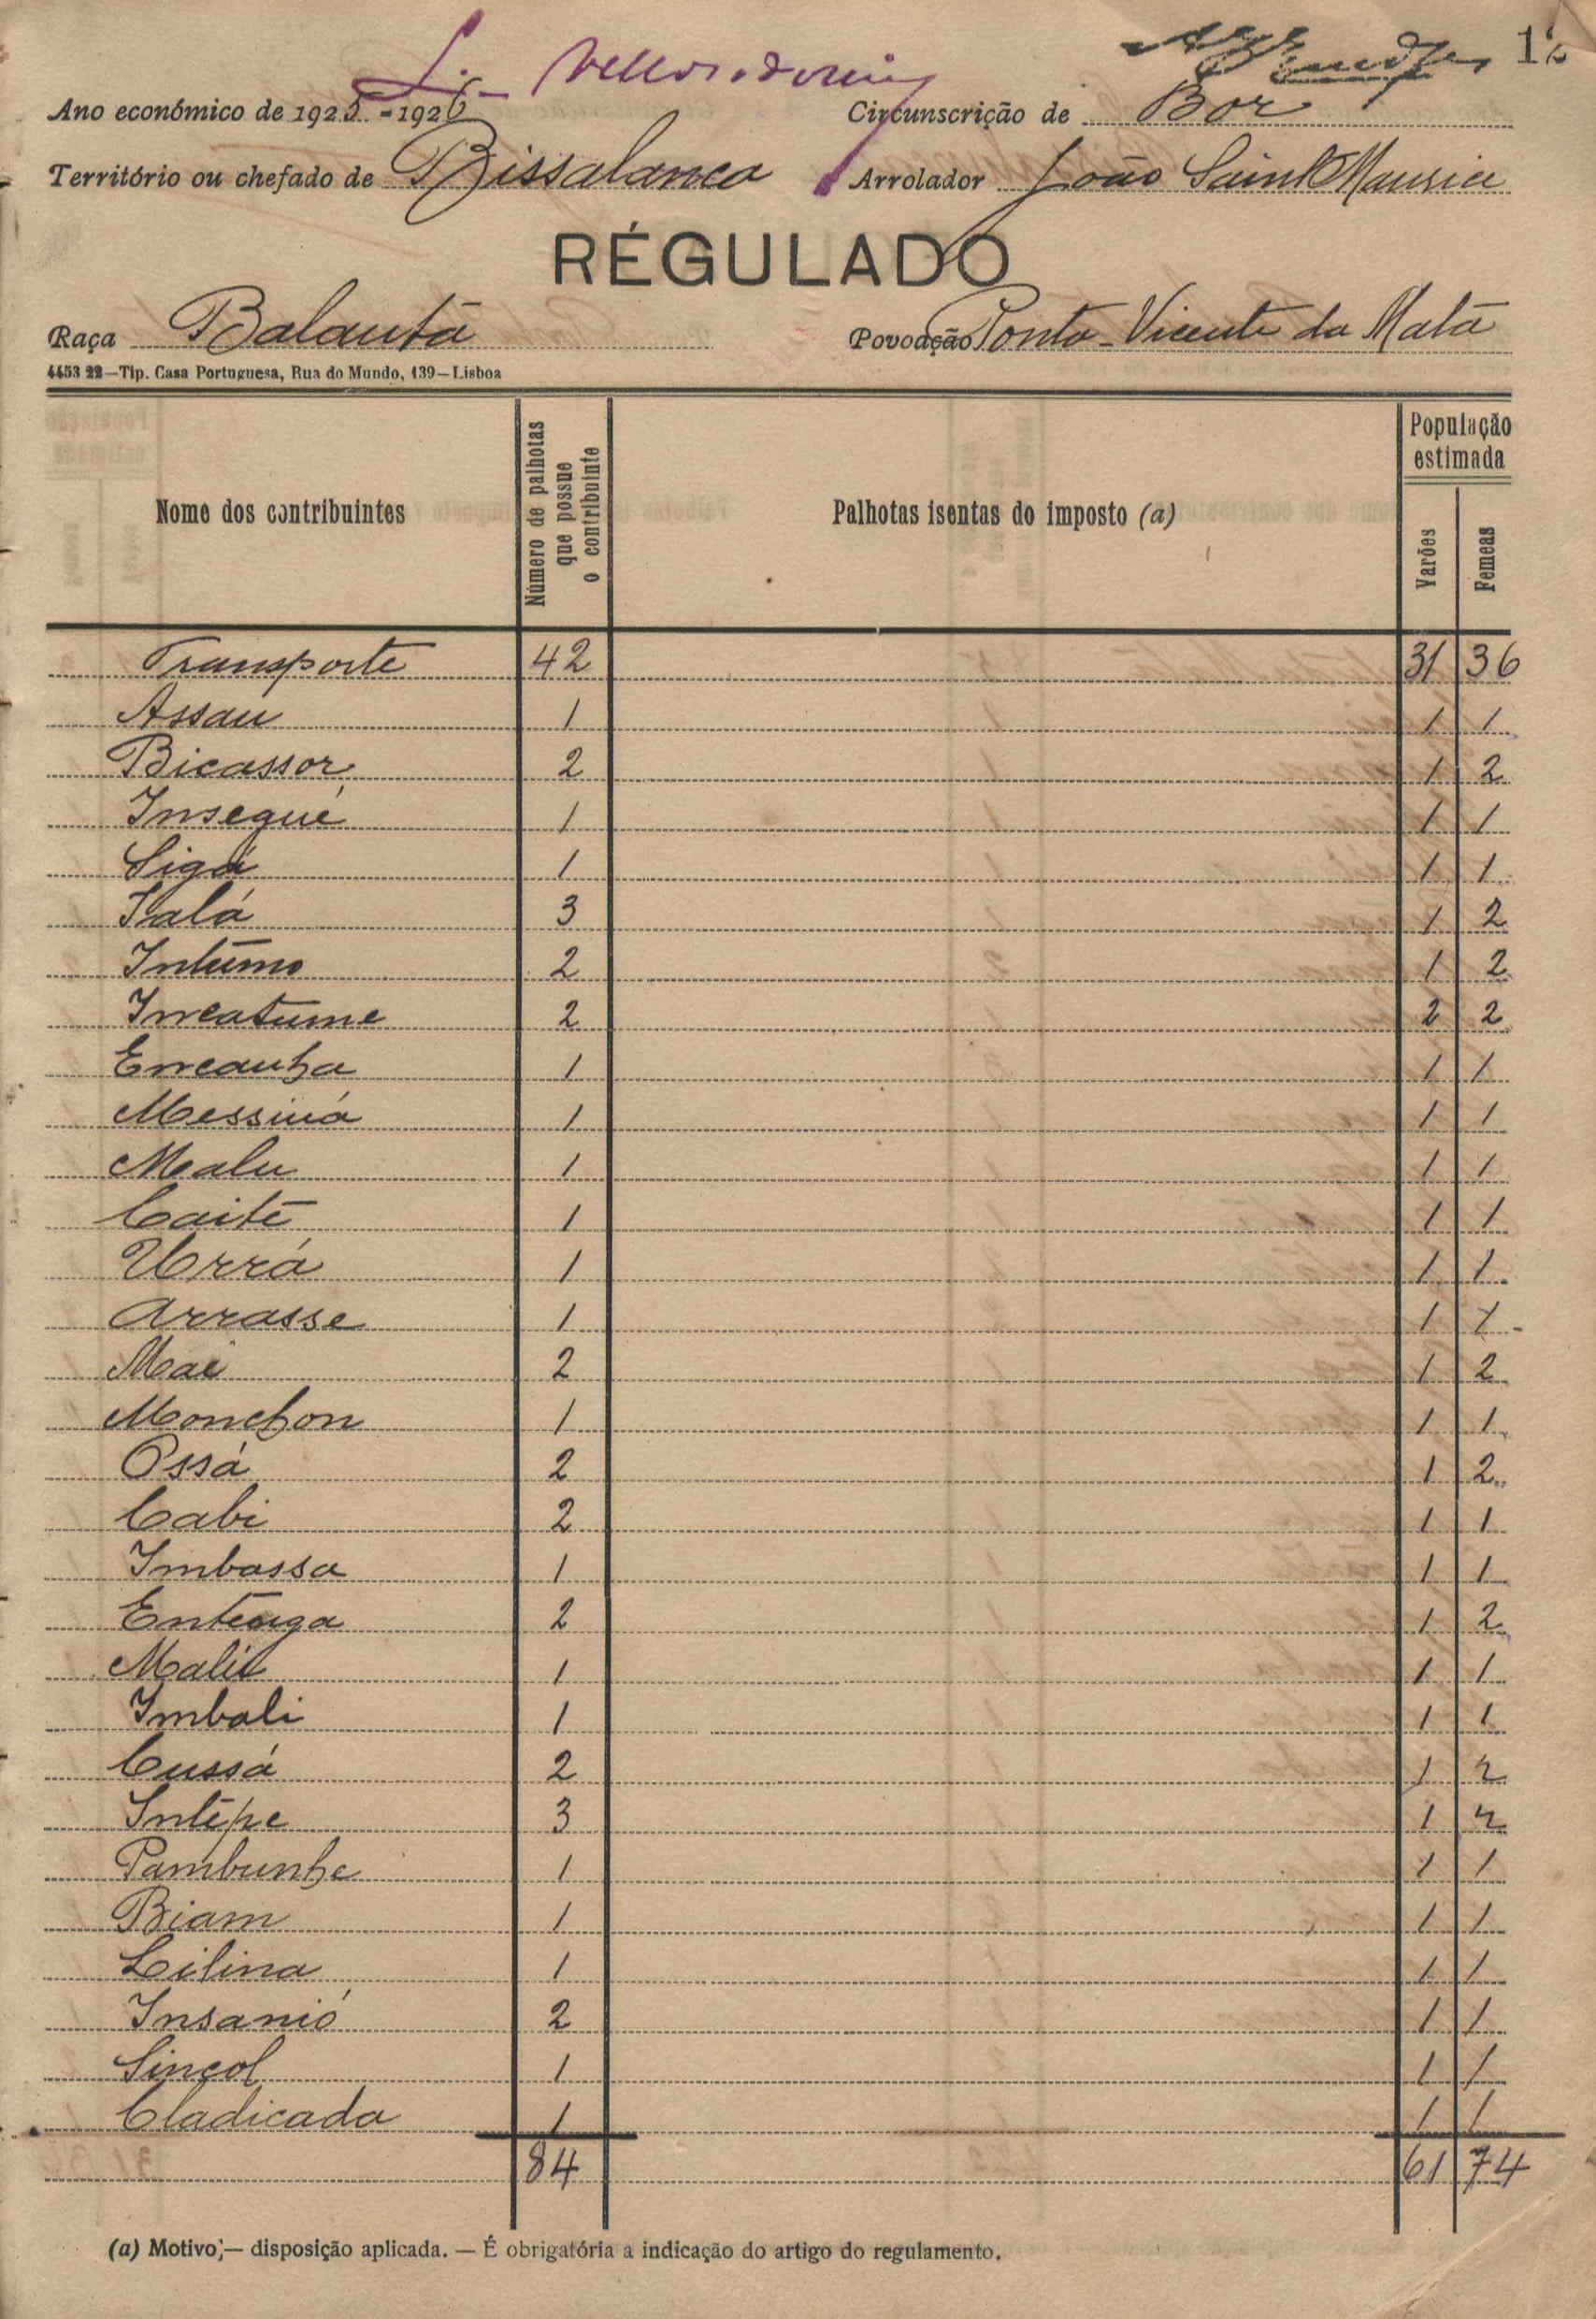 12
Ano económico de 1925-1926 Circunscrição de Bor
Território ou chefado de Bissalanca Arrolador João Saint Maurice
RÉGULADO
Raça Balanta Povoação Ponta Vicente da Mata
4453 22—Tip. Casa Portuguesa, Rua do Mundo, 139—Lisboa
Nome dos contribuintes Número de palhotas que possue o contribuinte Palhotas isentas do imposto (a) População estimada
Varões Femeas
Transporte 42 31 36
Assau 1 1 1
Bicassor 2 1 2
Insegué 1 1 1
Sigá 1 1 1
Salá 3 1 2
Intumo 2 1 2
Incatume 2 2 2
Encanha 1 1 1
Messiná 1 1 1
Malu 1 1 1
Caité 1 1 1
Urrá 1 1 1
Arrasse 1 1 1
Mae 2 1 2
Monchon 1 1 1
Ossá 2 1 2
Cabi 2 1 1
Imbassa 1 1 1
Entenga 2 1 2
Malic 1 1 1
Imbali 1 1 1
Cussá 2 1 2
Intépe 3 1 2
Pambunhe 1 1 1
Biam 1 1 1
Lilina 1 1 1
Insanió 2 1 1
Sincol 1 1 1
Cladicada 1 1 1
84 61 74
(a) Motivo;— disposição aplicada. — É obrigatória a indicação do artigo do regulamento.